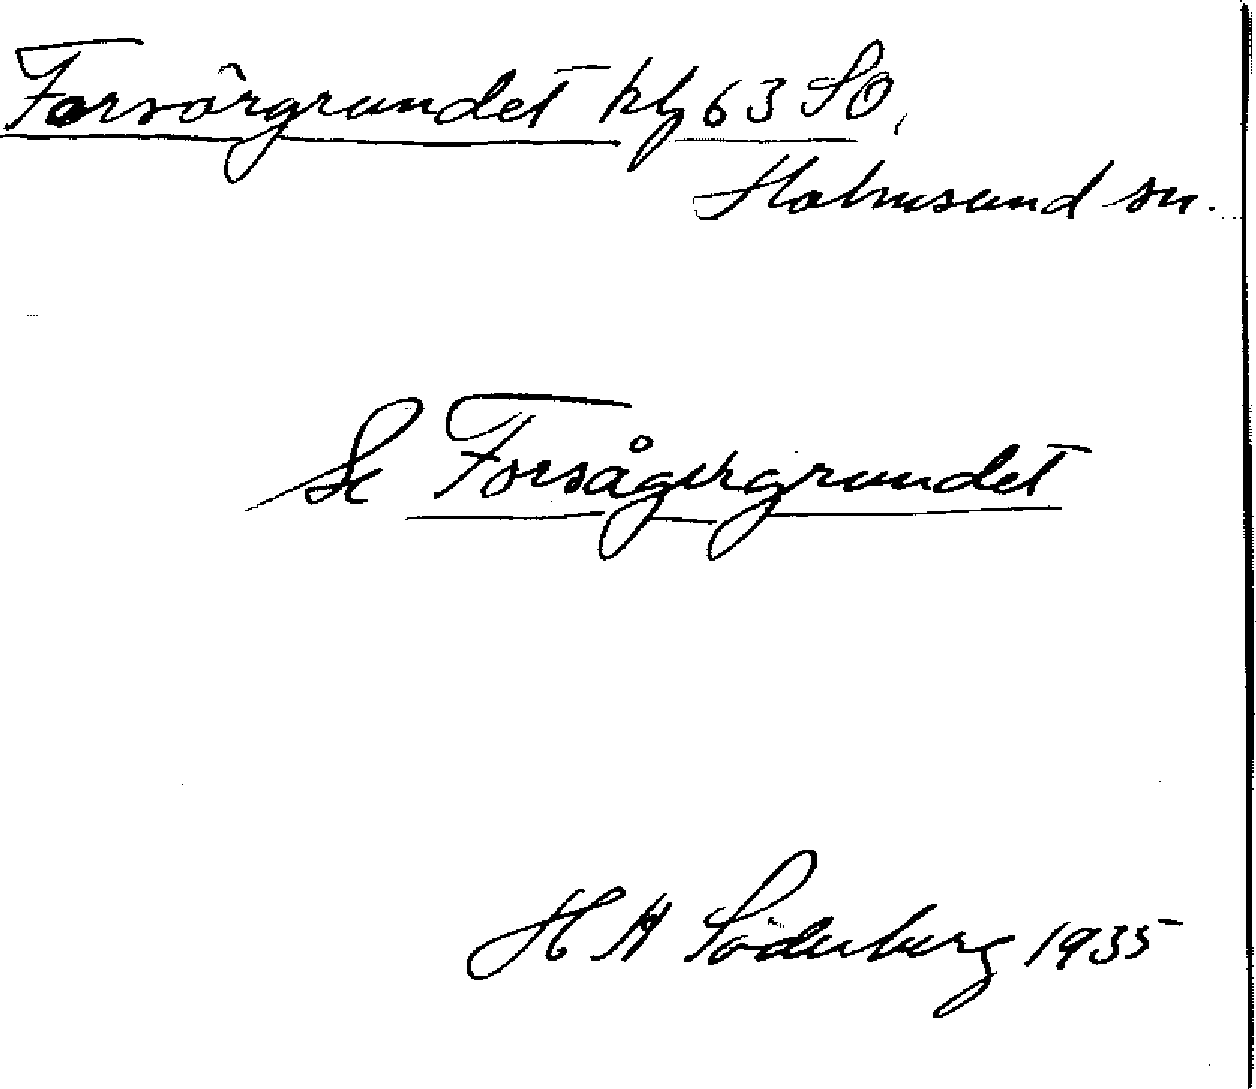 Forsörgrundet klg 63 SO,
Holmsund sn.
Se Forsågergrundet
H H Söderberg 1935